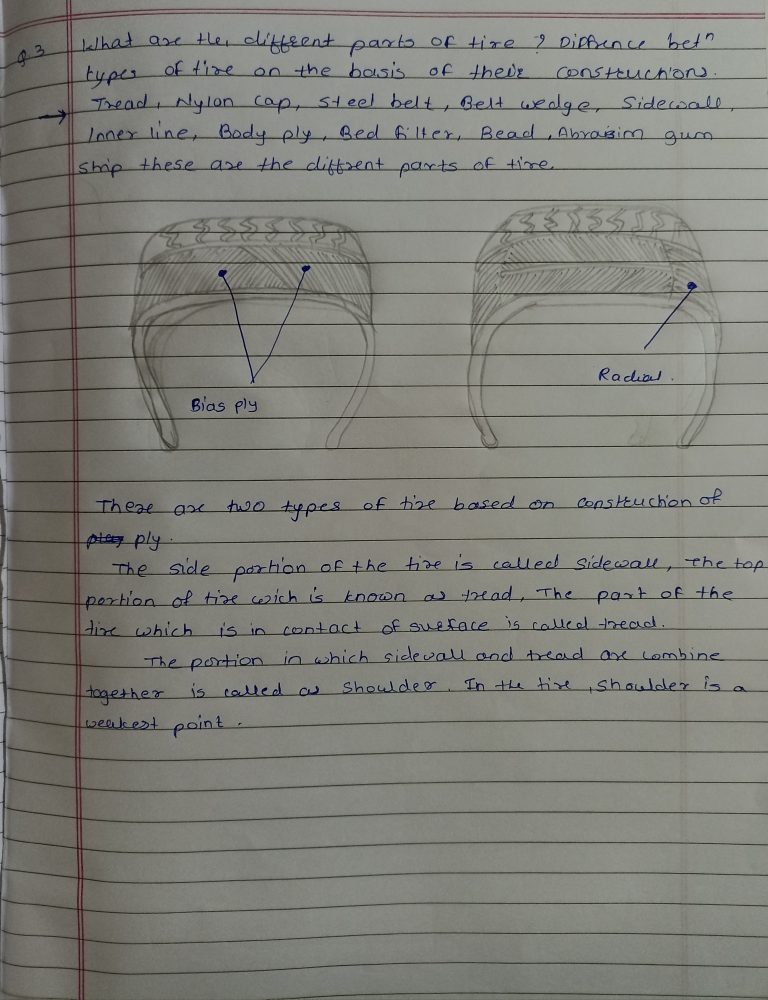 Q.3 What are the, diffrent parts of tire ? Diffrence betn
types of tire on the basis of their construction.
→ Tread, Nylon cap, steel belt, Belt wedge, Sidewall,
Inner line, Body ply, Bed filter, Bead, Abrasim gum
strip these are the diffrent parts of tire.
Bias ply
Radial.
There are two types of tire based on construction of
ply.
The side portion of the tire is called sidewall, the top
portion of tire wich is known as tread, The part of the
tire which is in contact of surface is called tread.
The portion in which sidewall and tread are combine
together is called as shoulder. In the tire, shoulder is a
weakest point.